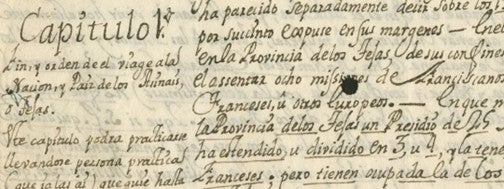 Capitulo 1.º
Fin, y orden de el viage a la
Nacion, y Pais de los
ô Tejas.
Este capitulo podra practicarse
llevandose persona practica
que hasta
ha parecido separadamente decir sobre los
por succinto expuse en sus margenes — En el
en la Provincia de los Tejas, de sus confines
el assentar ocho missiones de Franciscanos
Franceses, û otros Europeos. — En que m
la Provincia de los Tejas un Presidio de 25
ha estendido, u dividido en 3, u 4, y la tene
Franceses; pero tienen ocupada la de Los